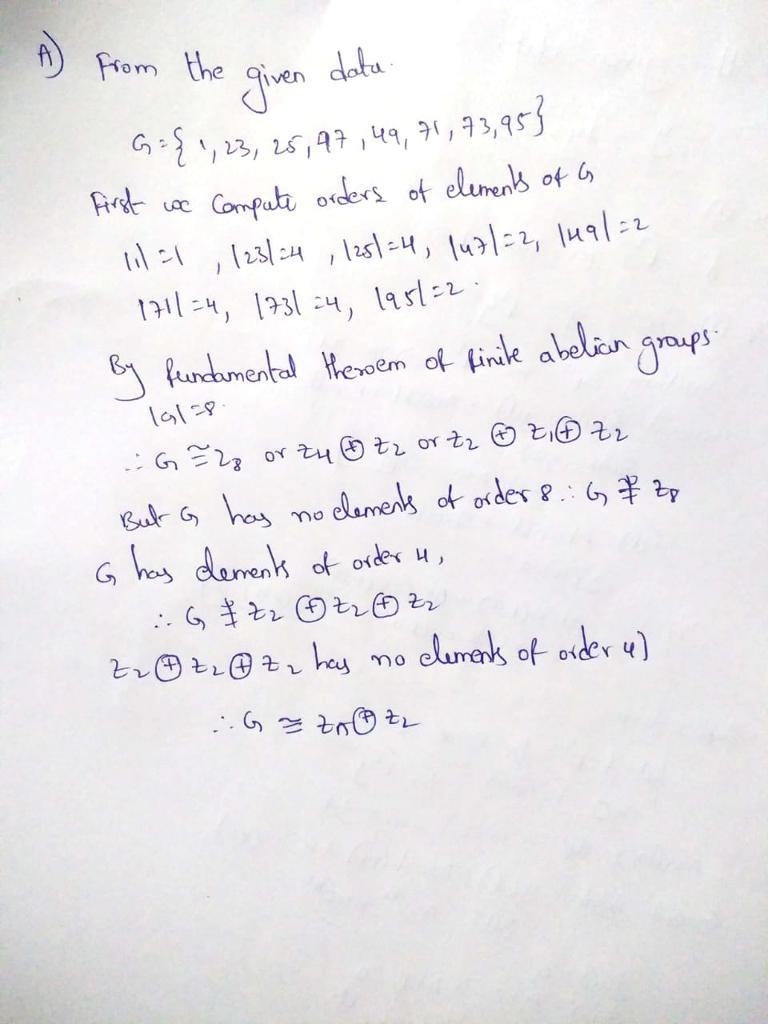 A) From the given data.
G = { 1, 23, 25, 47, 49, 71, 73, 95}
First we Compute orders of elements of G
|1| = 1 , |23| = 4 , |25| = 4, |47| = 2, |49| = 2
|71| = 4, |73| = 4, |95| = 2.
By fundamental theroem of finite abelian groups.
|G| = 8.
∴ G ≅ Z8 or Z4 ⊕ Z2 or Z2 ⊕ Z1 ⊕ Z2
But G has no elements of order 8 ∴ G ≇ Z8
G has elements of order 4,
∴ G ≇ Z2 ⊕ Z2 ⊕ Z2
Z2 ⊕ Z2 ⊕ Z2 has no elements of order 4)
∴ G ≅ Zn ⊕ Z2